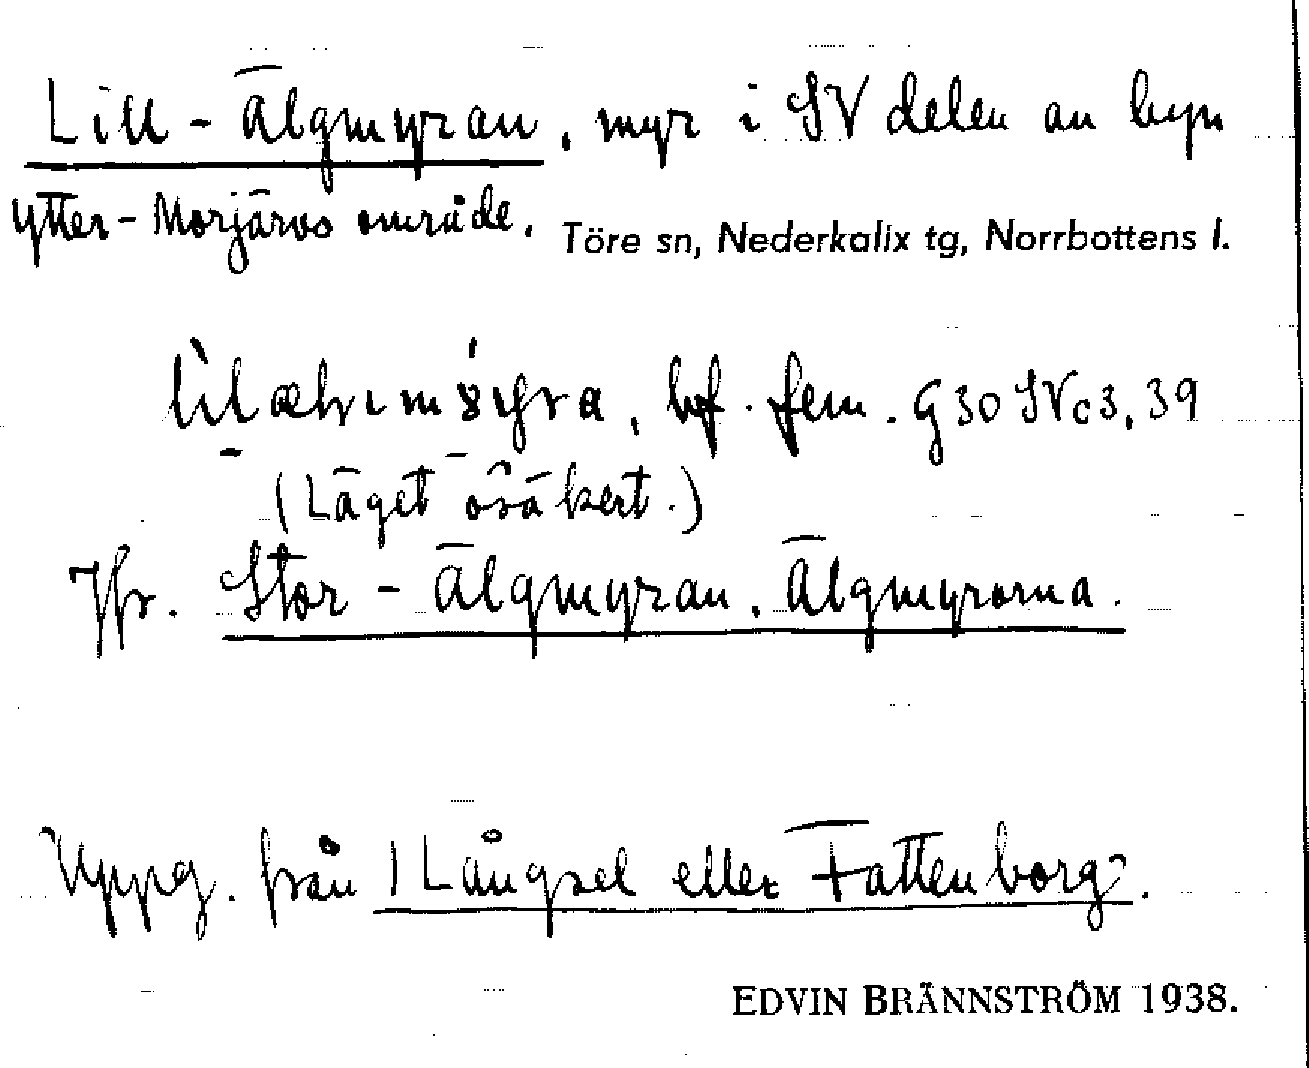 Lill-Älgmyran, myr i SV delen av byn
Ytter-Morjärvs område. Töre sn, Nederkalix tg, Norrbottens l.
bf. fem. G30 SVc3, 39
(Läget osäkert.)
Jfr. Stor-Älgmyran, Älgmyrorna.
Uppg. från 1 Långsel eller Fattenborg.
EDVIN BRÄNNSTRÖM 1938.